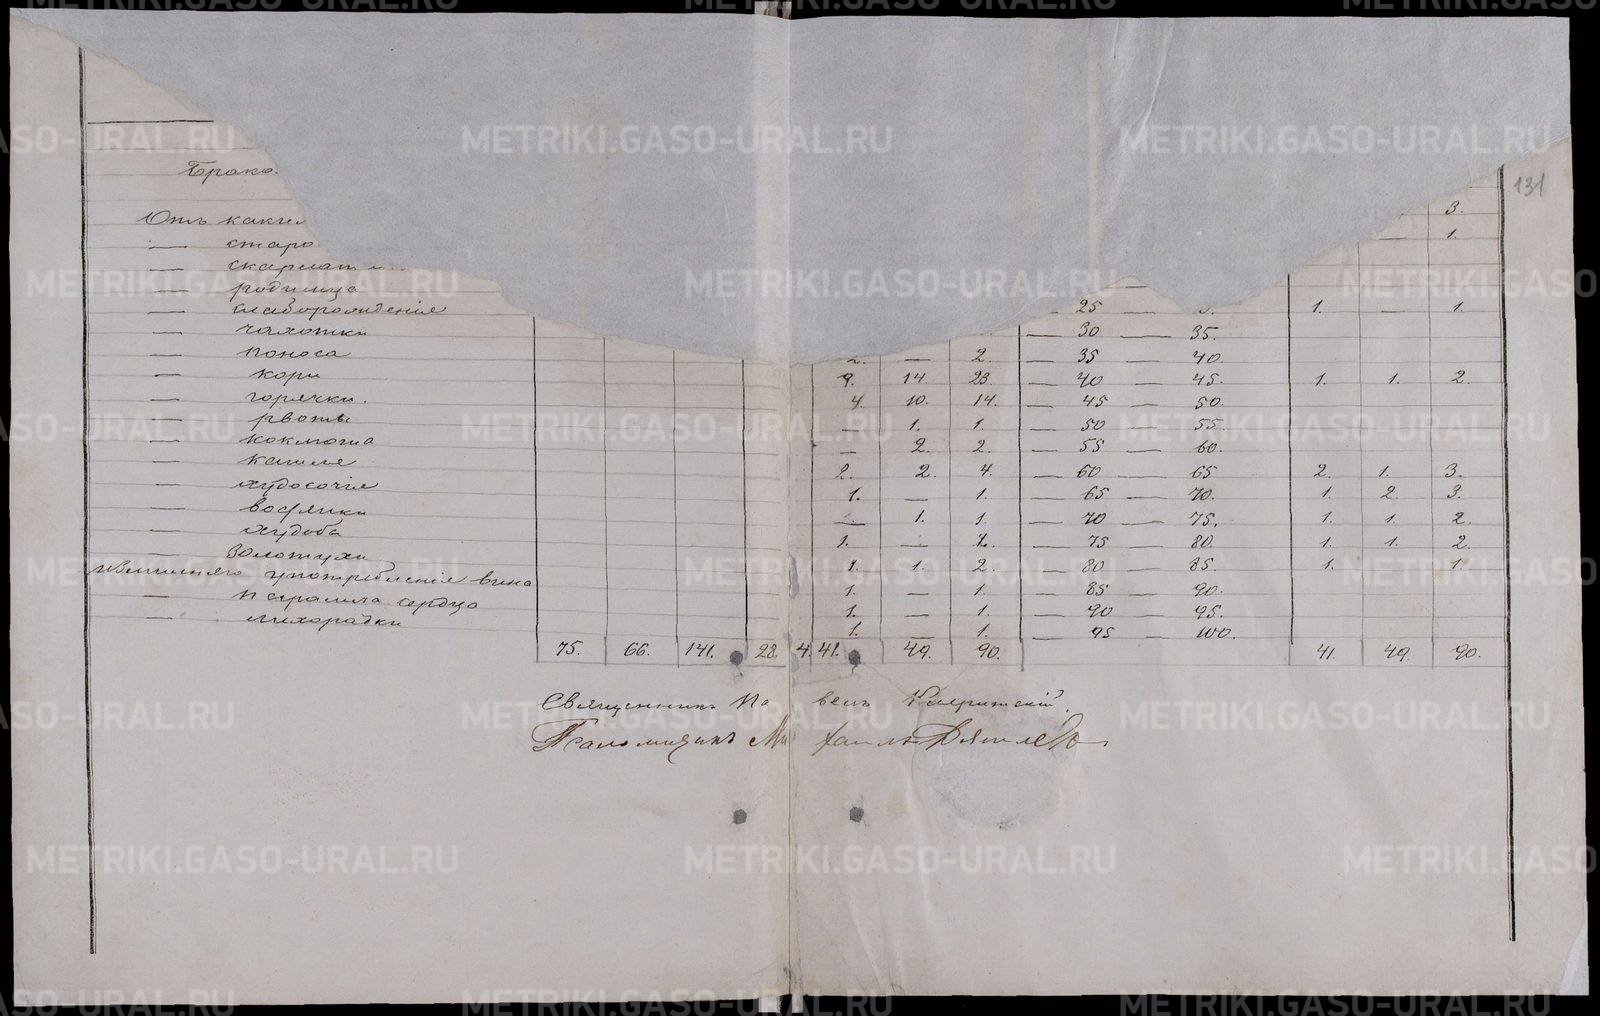 131
Брако
Отъ каких
3.
— старо
— 1.
— скарлат
— родимца
— слаборожденія — 25 — 1. — 1.
— чахотки — 30 — 35.
— поноса 2. — 2. — 35 — 40.
— кори 9. 14. 23. — 40 — 45. 1. 1. 2.
— горячки. 4. 10. 14. — 45 — 50.
— рвоты — 1. 1. — 50 — 55.
— коклюша — 2. 2. — 55 — 60.
— кашля 2. 2. 4. — 60 — 65 2. 1. 3.
— худосочія 1. — 1. — 65 — 70. 1. 2. 3.
— воспянки — 1. 1. — 70 — 75. 1. 1. 2.
— худоба 1. — 1. — 75 — 80. 1. 1. 2.
— золотухи 1. 1. 2. — 80 — 85. 1. 1.
излишняго употребленія вина 1. — 1. — 85 — 90.
— сердца 1. — 1. — 90 — 95.
— лихорадки 1. — 1. — 95 — 100.
75. 66. 141. 28. 4. 41. 49. 90. 41. 49. 90.
Священникъ Павелъ
Псаломщикъ Михаилъ
METRIKI.GASO-URAL.RU